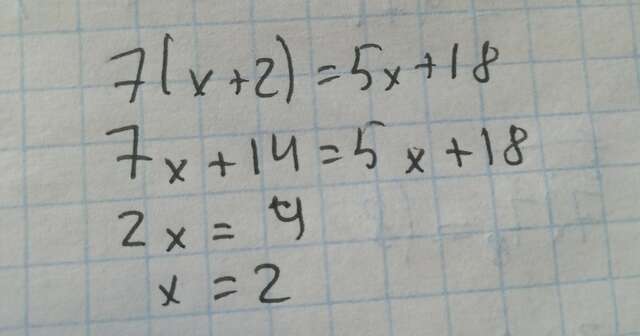 7(x+2)=5x+18
7x+14=5x+18
2x=4
x=2